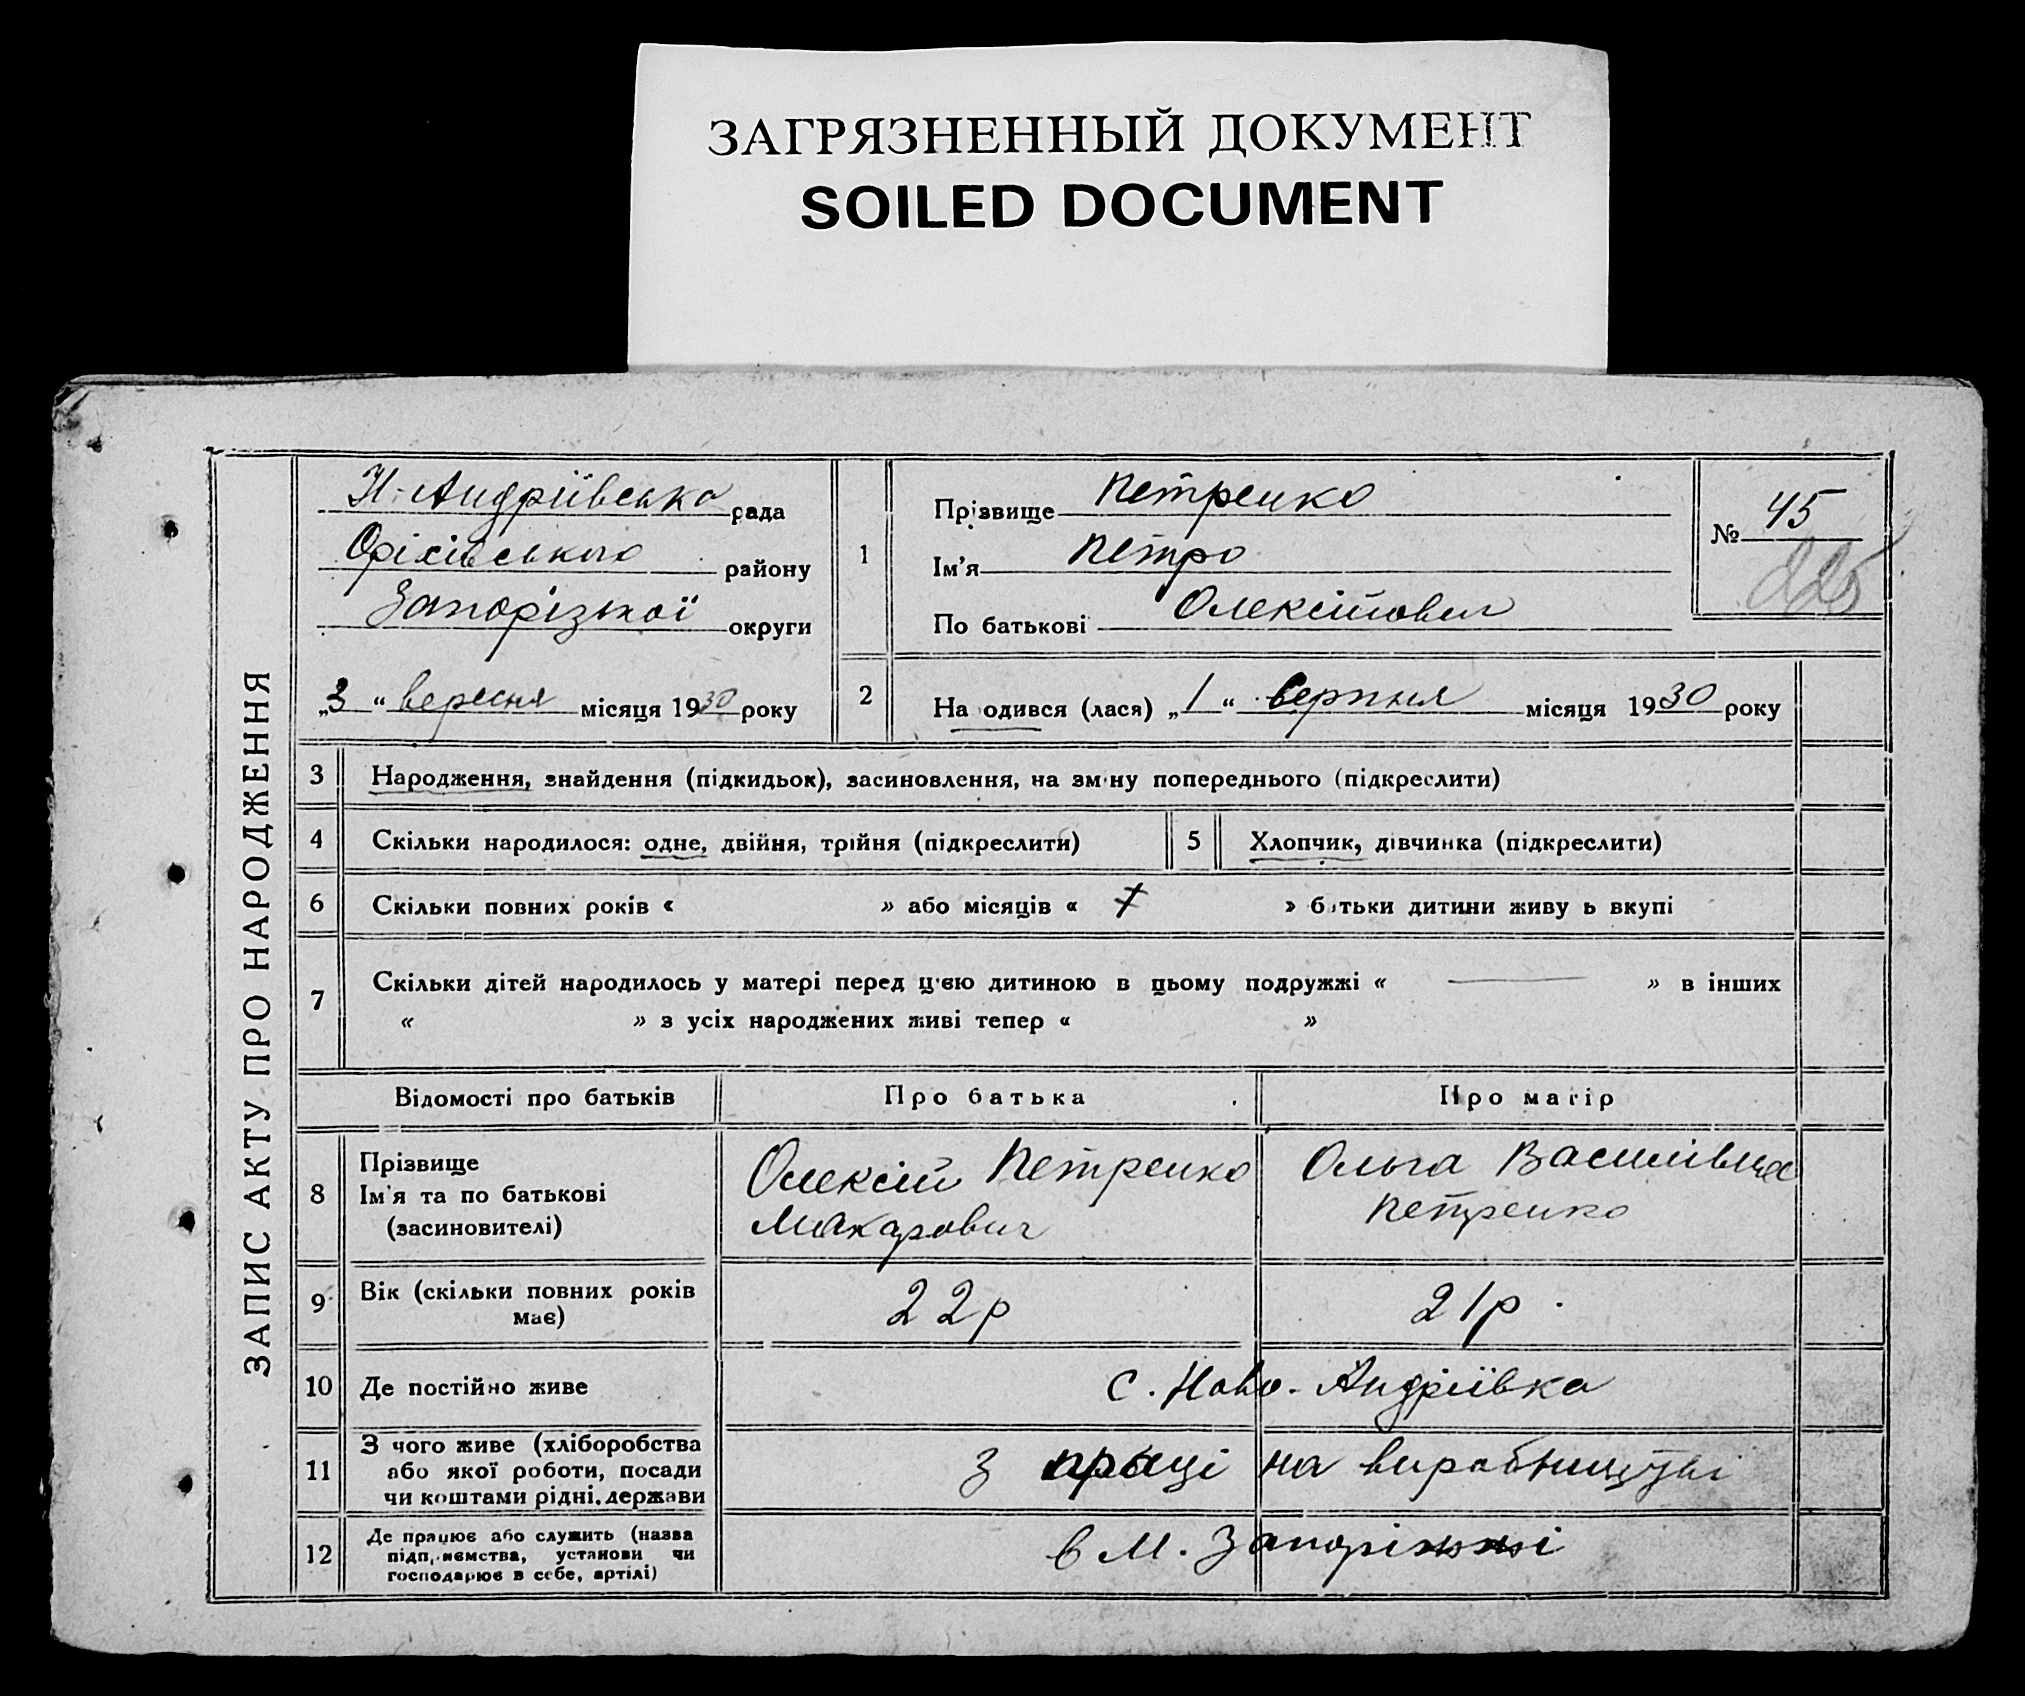 ЗАГРЯЗНЕННЫЙ ДОКУМЕНТ
SOILED DOCUMENT
ЗАПИС АКТУ ПРО НАРОДЖЕННЯ
Н-Андріївська рада
Оріхівського району
Запорізької округи
„3“ вересня місяця 1930 року
1
Прізвище Петренко
Ім'я Петро
По батькові Олексійович
№ 45
225
2 На одився (лася) „1“ серпня місяця 1930 року
3 Народження, знайдення (підкидьок), засиновлення, на зміну попереднього (підкреслити)
4 Скільки народилося: одне, двійня, трійня (підкреслити)
5 Хлопчик, дівчинка (підкреслити)
6 Скільки повних років « » або місяців « 7 » батьки дитини живу ь вкупі
7 Скільки дітей народилось у матері перед цією дитиною в цьому подружжі « — » в інших
« » з усіх народжених живі тепер « »
Відомості про батьків Про батька Про матір
8 Прізвище
Ім'я та по батькові
(засиновителі)
Олексій Петренко
Макарович
Ольга Василівна
Петренко
9 Вік (скільки повних років
має)
22р 21р.
10 Де постійно живе с. Ново-Андріївка
11 З чого живе (хліборобства
або якої роботи, посади
чи коштами рідні, держави
З праці на виробництві
12 Де працює або служить (назва
підприємства, установи чи
господарює в себе, артілі)
в м. Запоріжжі